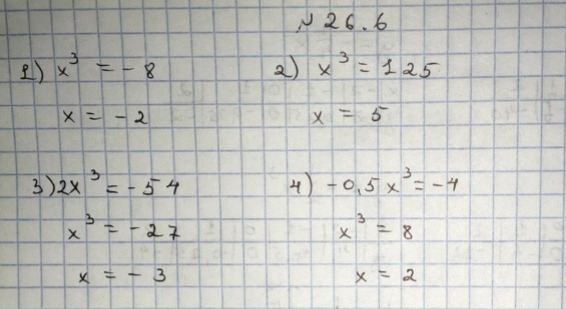 № 26.6
1) x³ = -8
x = -2
2) x³ = 125
x = 5
3) 2x³ = -54
x³ = -27
x = -3
4) -0,5x³ = -4
x³ = 8
x = 2